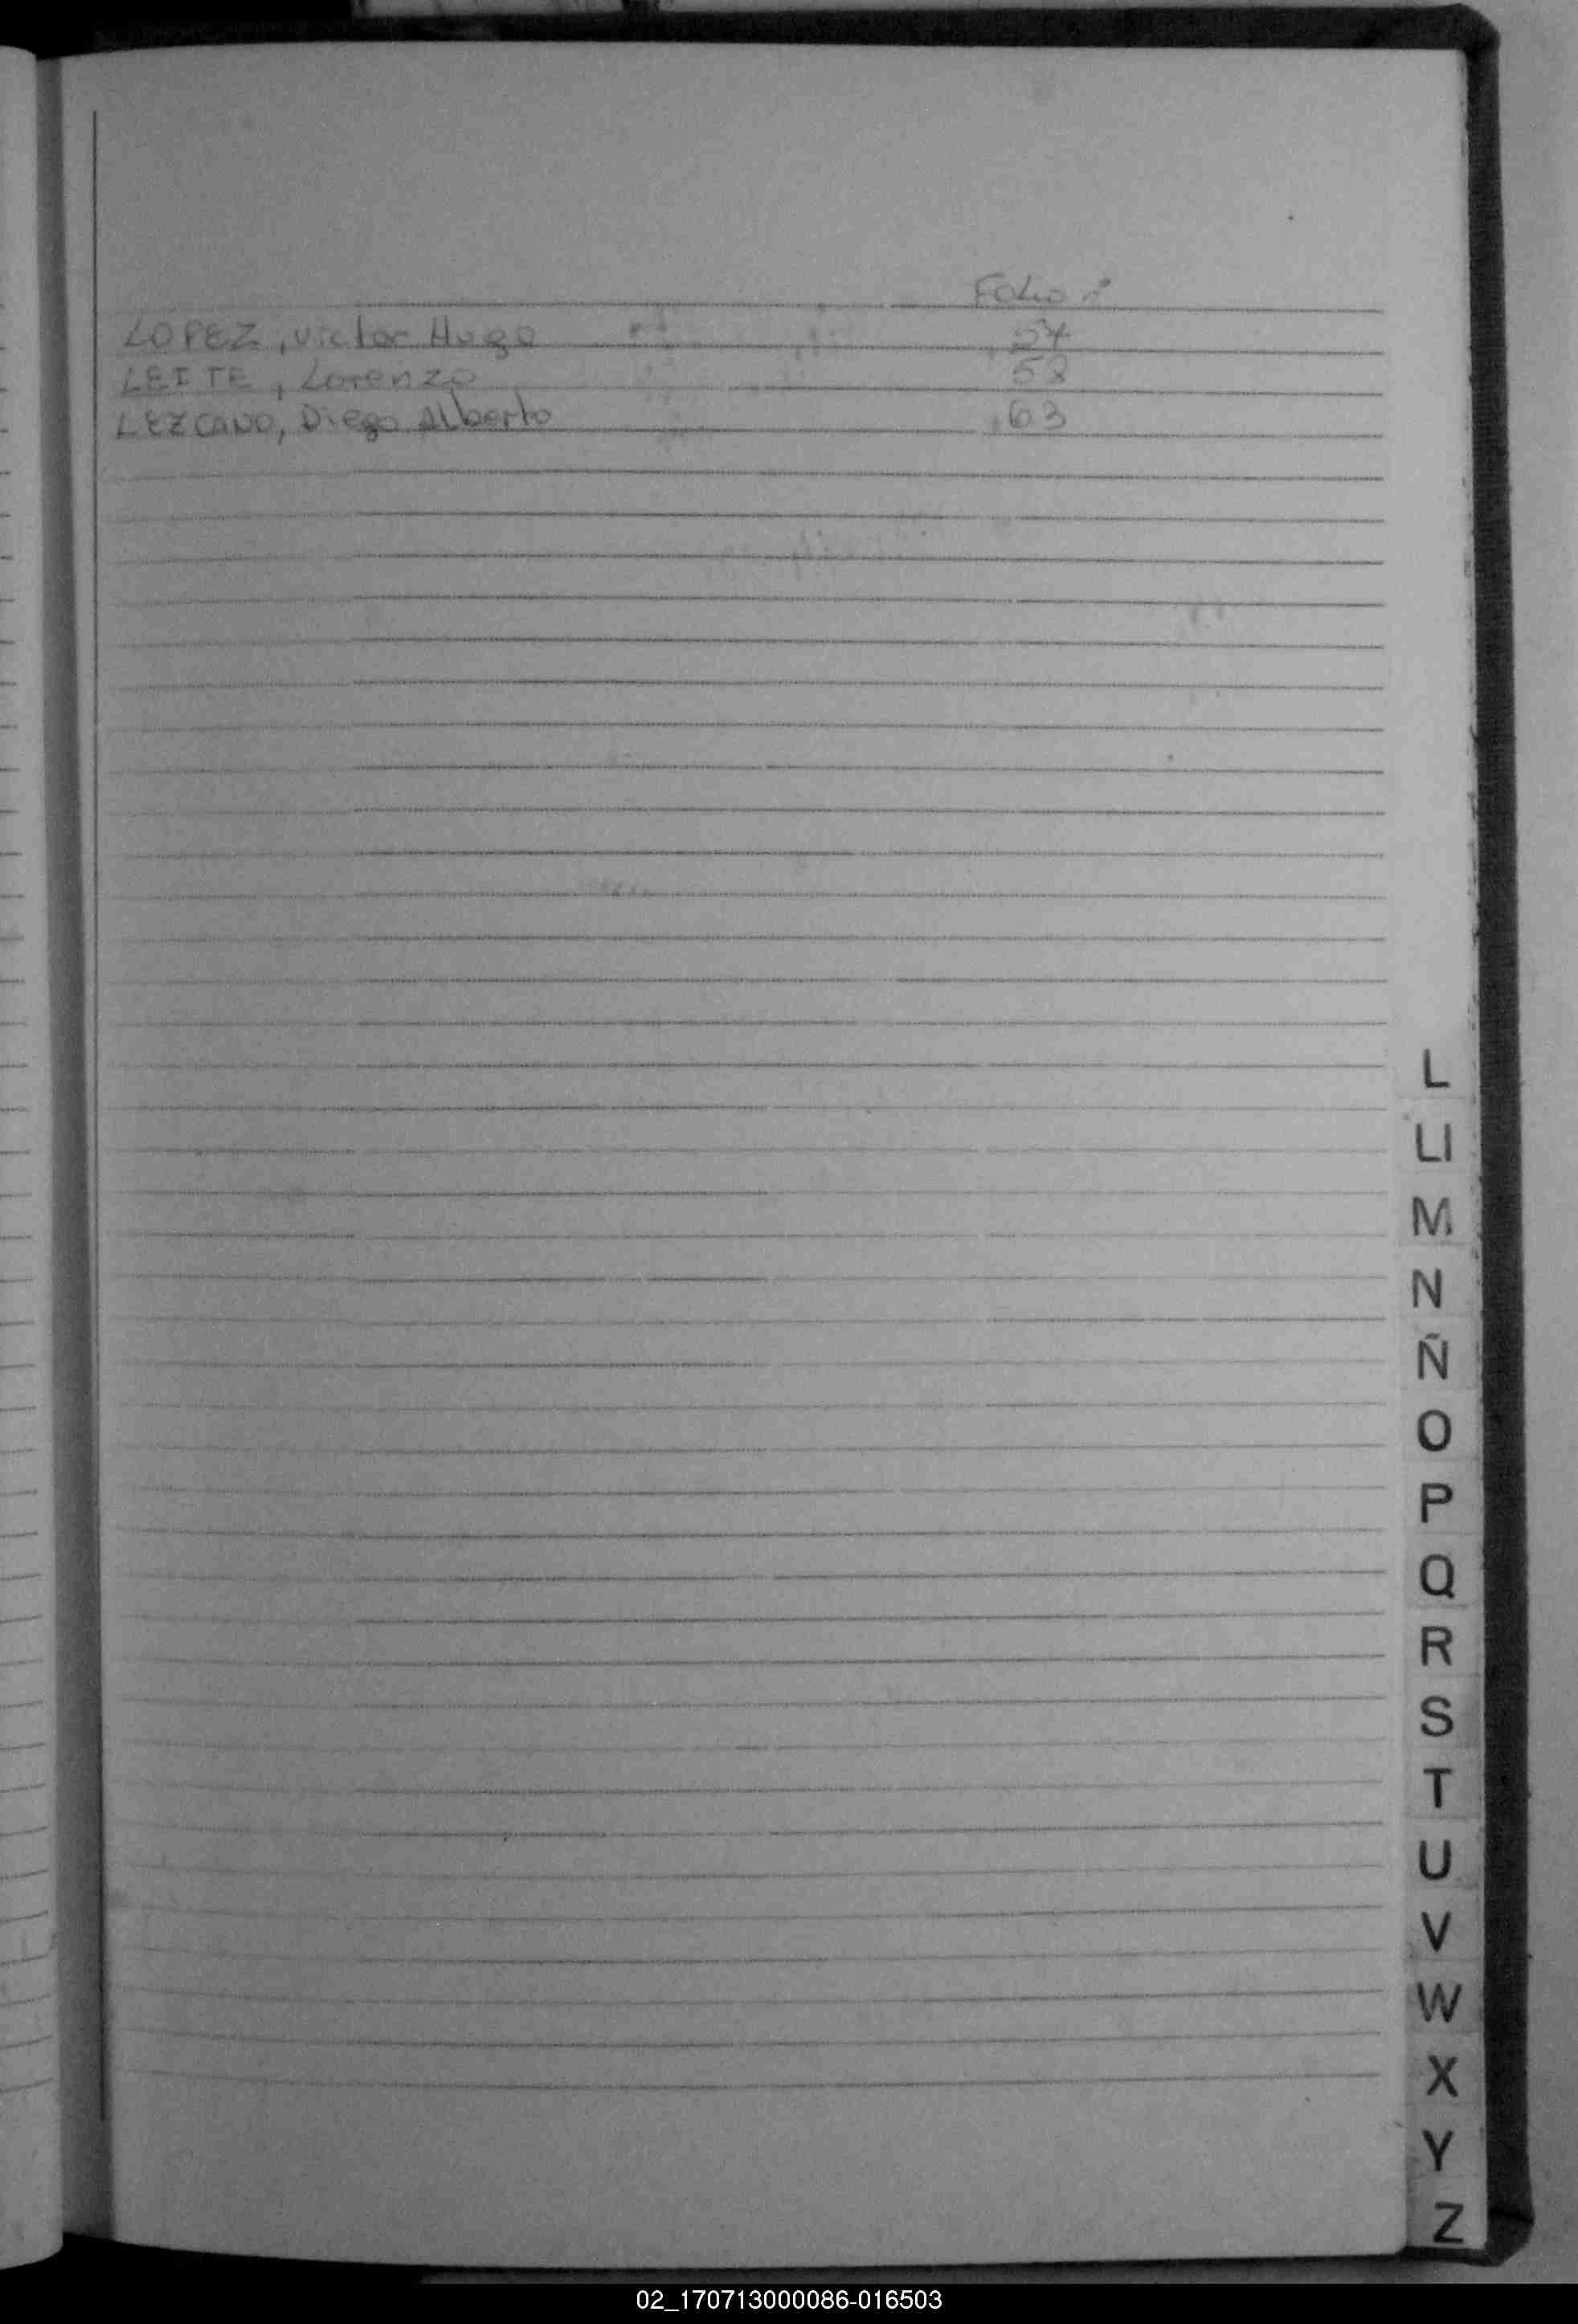 Folio n°
LOPEZ, Victor Hugo 54
LEITE, Lorenzo 58
LEZCANO, Diego Alberto 63
L
Ll
M
N
Ñ
O
P
Q
R
S
T
U
V
W
X
Y
Z
02_170713000086-016503